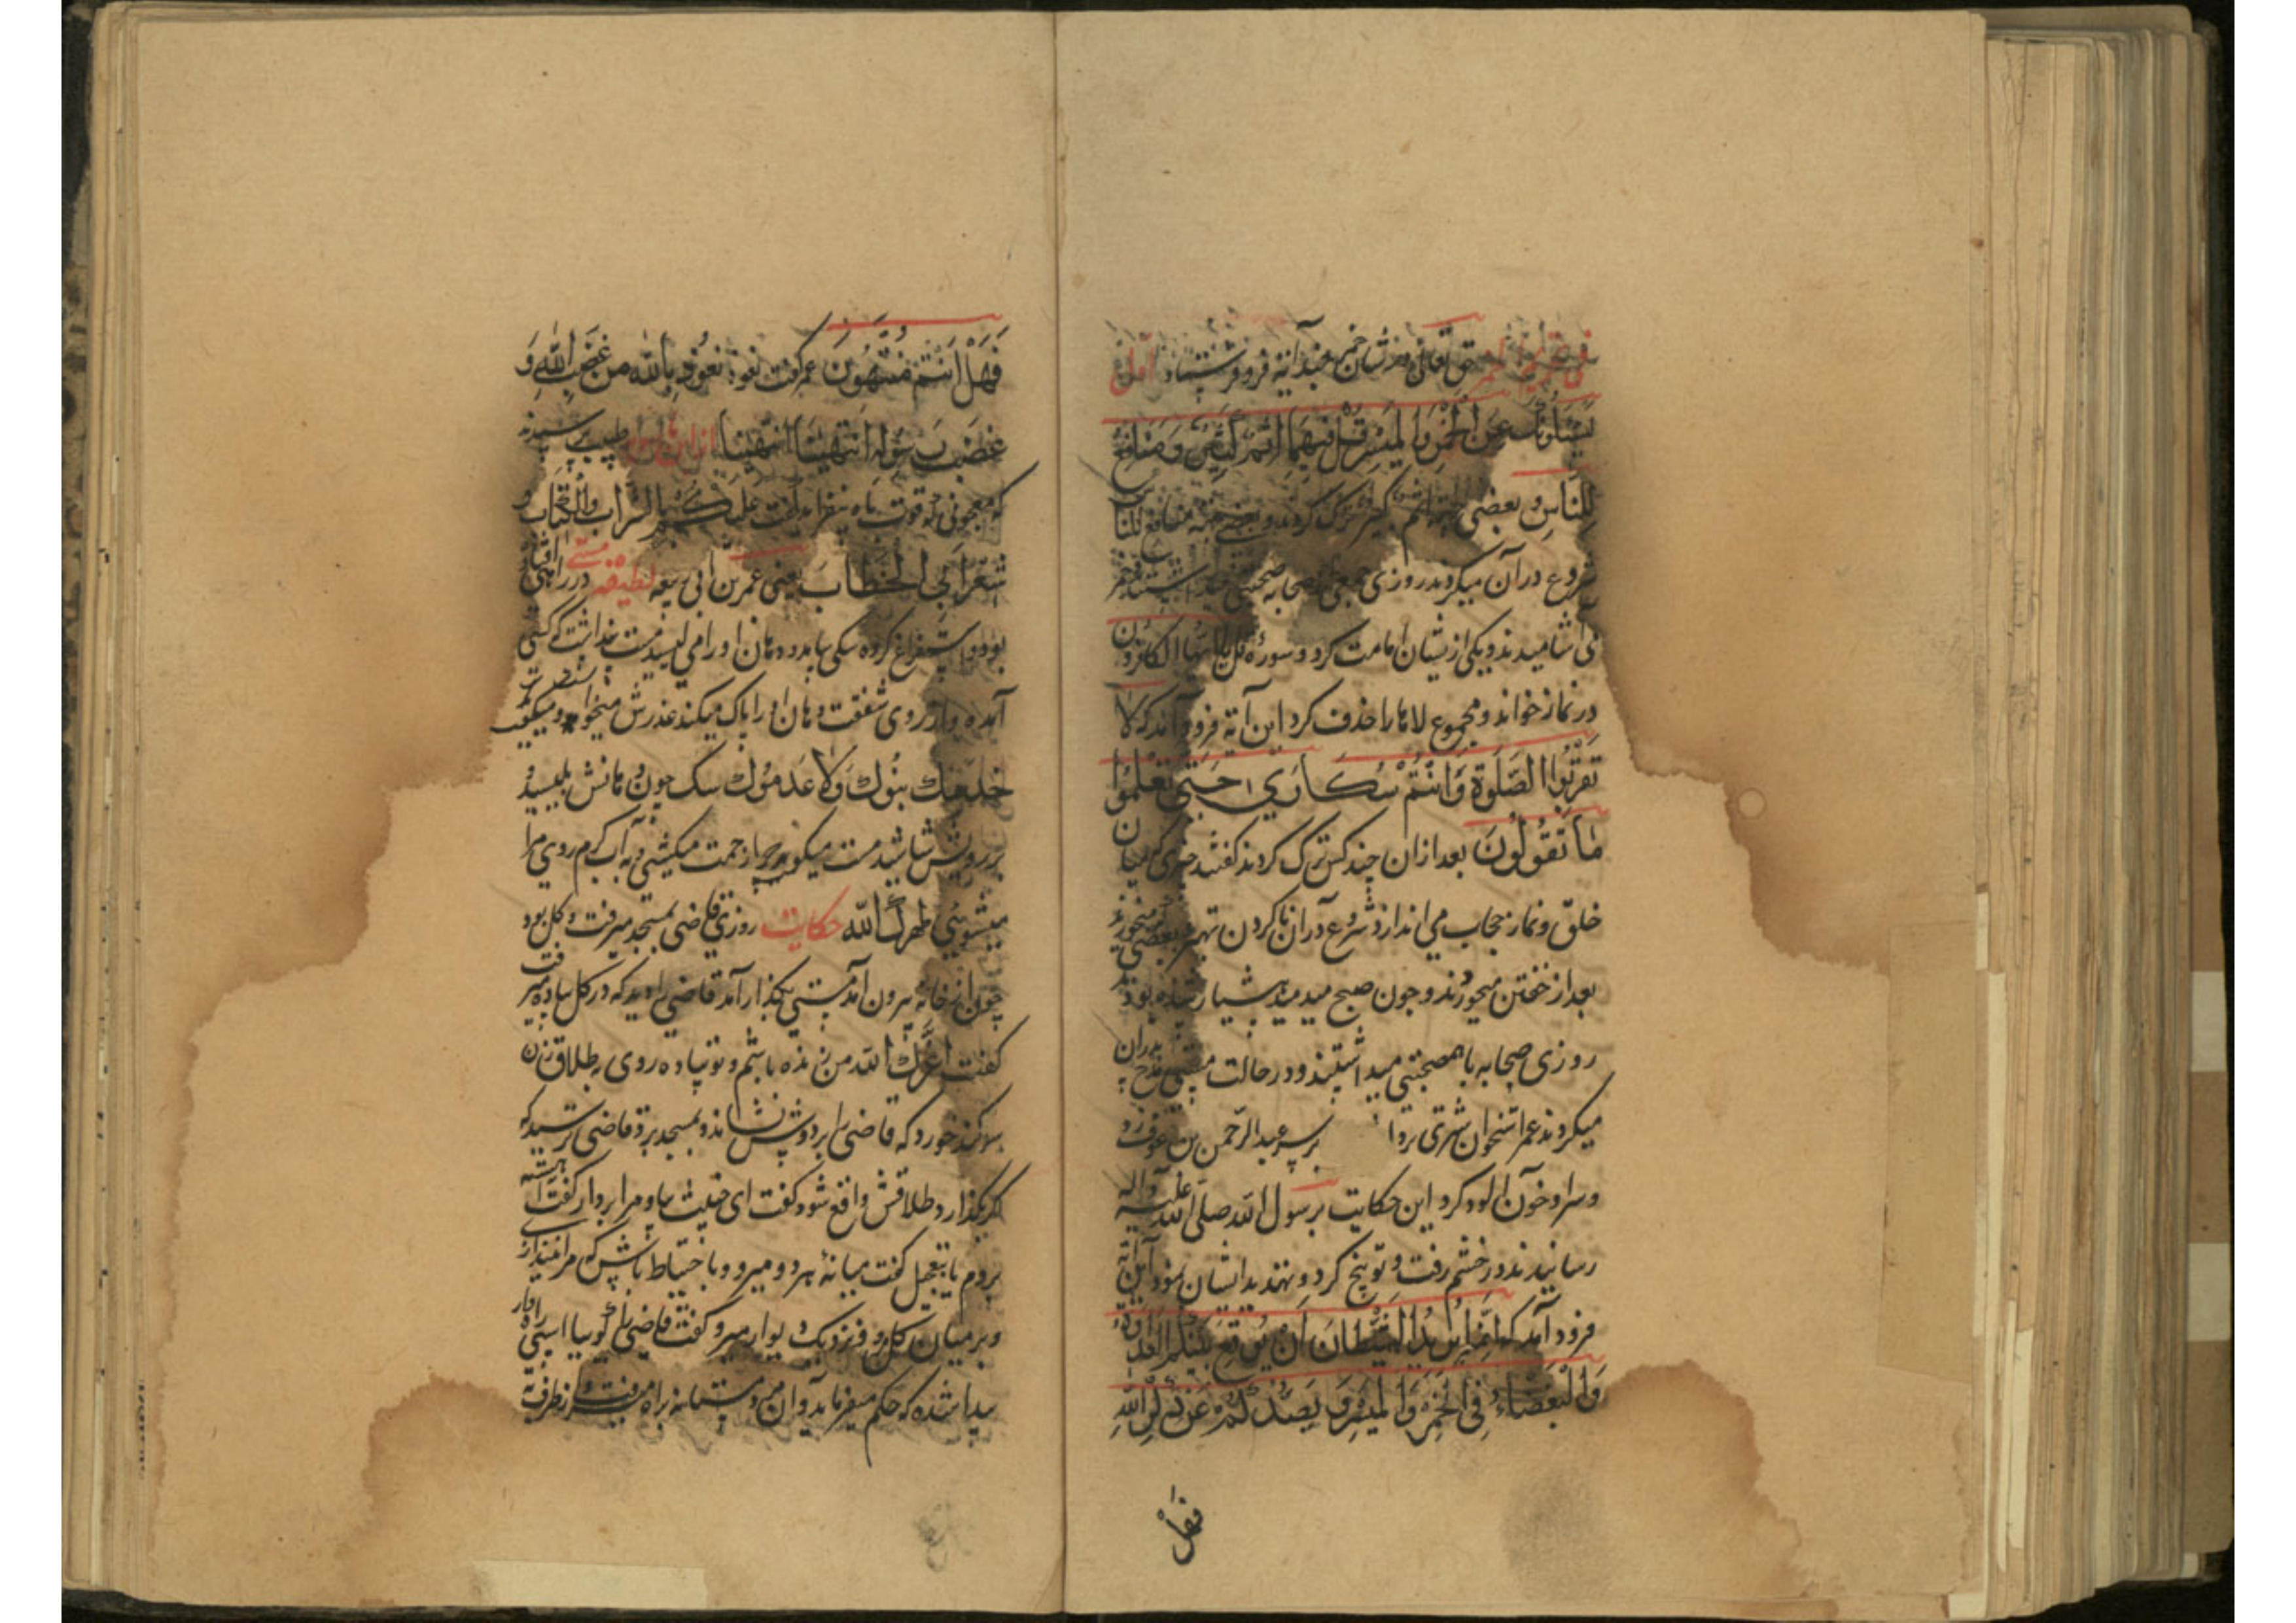 فی تحریم الخمر حق تعالی در شان خمر چند آیه فرو فرستاد اول
یَسْئَلُونَكَ عَنِ الْخَمْرِ وَالْمَیْسِرِ قُلْ فِیهِمَا اِثْمٌ كَبِیرٌ وَمَنَافِعُ
لِلنَّاسِ و بعضی اثم کبیر ترک کردند و بعضی منافع للناس
شروع در آن میکردند روزی جمعی صحابه صحبتی داشتند و خمر
می آشامیدند و یکی از ایشان امامت کرد و سورهٔ قل یا ایها الکافرون
در نماز خواند و مجموع لاها را حذف کرد این آیه فرود آمد که لا
تَقْرَبُوا الصَّلٰوةَ وَاَنْتُمْ سُكَارَی حَتَّی تَعْلَمُوا
مَا تَقُولُونَ بعد از ان چند کس ترک کردند گفتند چیزی که میان
خلق و نماز حجاب می اندازد شروع در ان ناکردن بهتر و بعضی میخوردند
بعد از خفتن میخوردند و چون صبح میدمید هشیار شده بودند
روزی صحابه با هم صحبتی میداشتند و در حالت مستی مدح پدران
میکردند عمر استخوان شتری بردا بر سر عبد الرحمن بن عوف زد
و سر او خون آلود کرد این حکایت برسول الله صلی الله علیه و آله
رسانیدند در خشم رفت و توبیخ کرد و تهدید ایشان نمود این آیه
فرود آمد که اِنَّمَا یُرِیدُ الشَّیْطَانُ اَنْ یُوقِعَ بَیْنَكُمُ الْعَدَاوَةَ
وَالْبَغْضَاءَ فِی الْخَمْرِ وَالْمَیْسِرِ وَیَصُدَّكُمْ عَنْ ذِكْرِ اللّٰهِ
فهل
فَهَلْ اَنْتُمْ مُنْتَهُونَ عمر گفت نعوذ نعوذ بالله من غضب الله و
غضب رسوله انتهینا انتهینا از ابن طبیب پرسیدند
که معجونی که قوت باه بیفزاید گفت علیکم بالشراب والکباب و
شعر ابی الخطاب یعنی عمر بن ابی ربیعه لطیفه مستی در راه افتاده
بود و استفراغ کرده سگی بیامد و دهان او را می لیسید مست پنداشت که کسی
آمده و از روی شفقت دهان او را پاک میکند عذرش میخواهد و میگفت
خدمك بنوك ولا عدموك سگ چون دهانش بلیسید
بر رویش شاشید مست میگوید چرا زحمت میکشی و به آب گرم روی مرا
میشویی طهرك الله حکایت روزی قاضی بمسجد میرفت و گل بود
چون از خانه بیرون آمد مستی بگذار آمد قاضی را دید که در گل پیاده میرفت
گفت اعزك الله من زنده باشم و تو پیاده روی بطلاق زن
سوگند خورد که قاضی را بر دوش نشاند و بمسجد برد قاضی ترسید که
اگر بگذارد طلاقش واقع شود گفت ای خبیث بیا و مرا بردار گفت آهسته
بروم یا بتعجیل گفت میانه هر دو میرو و با احتیاط باش که مرا نیندازی
و بر میان گل مرو و نزدیک دیوار میرو گفت قاضی را گوییا اسپی راهوار
پیدا شده که حکم میفرماید و آن مرد مستانه براه میرفت و از طرف به